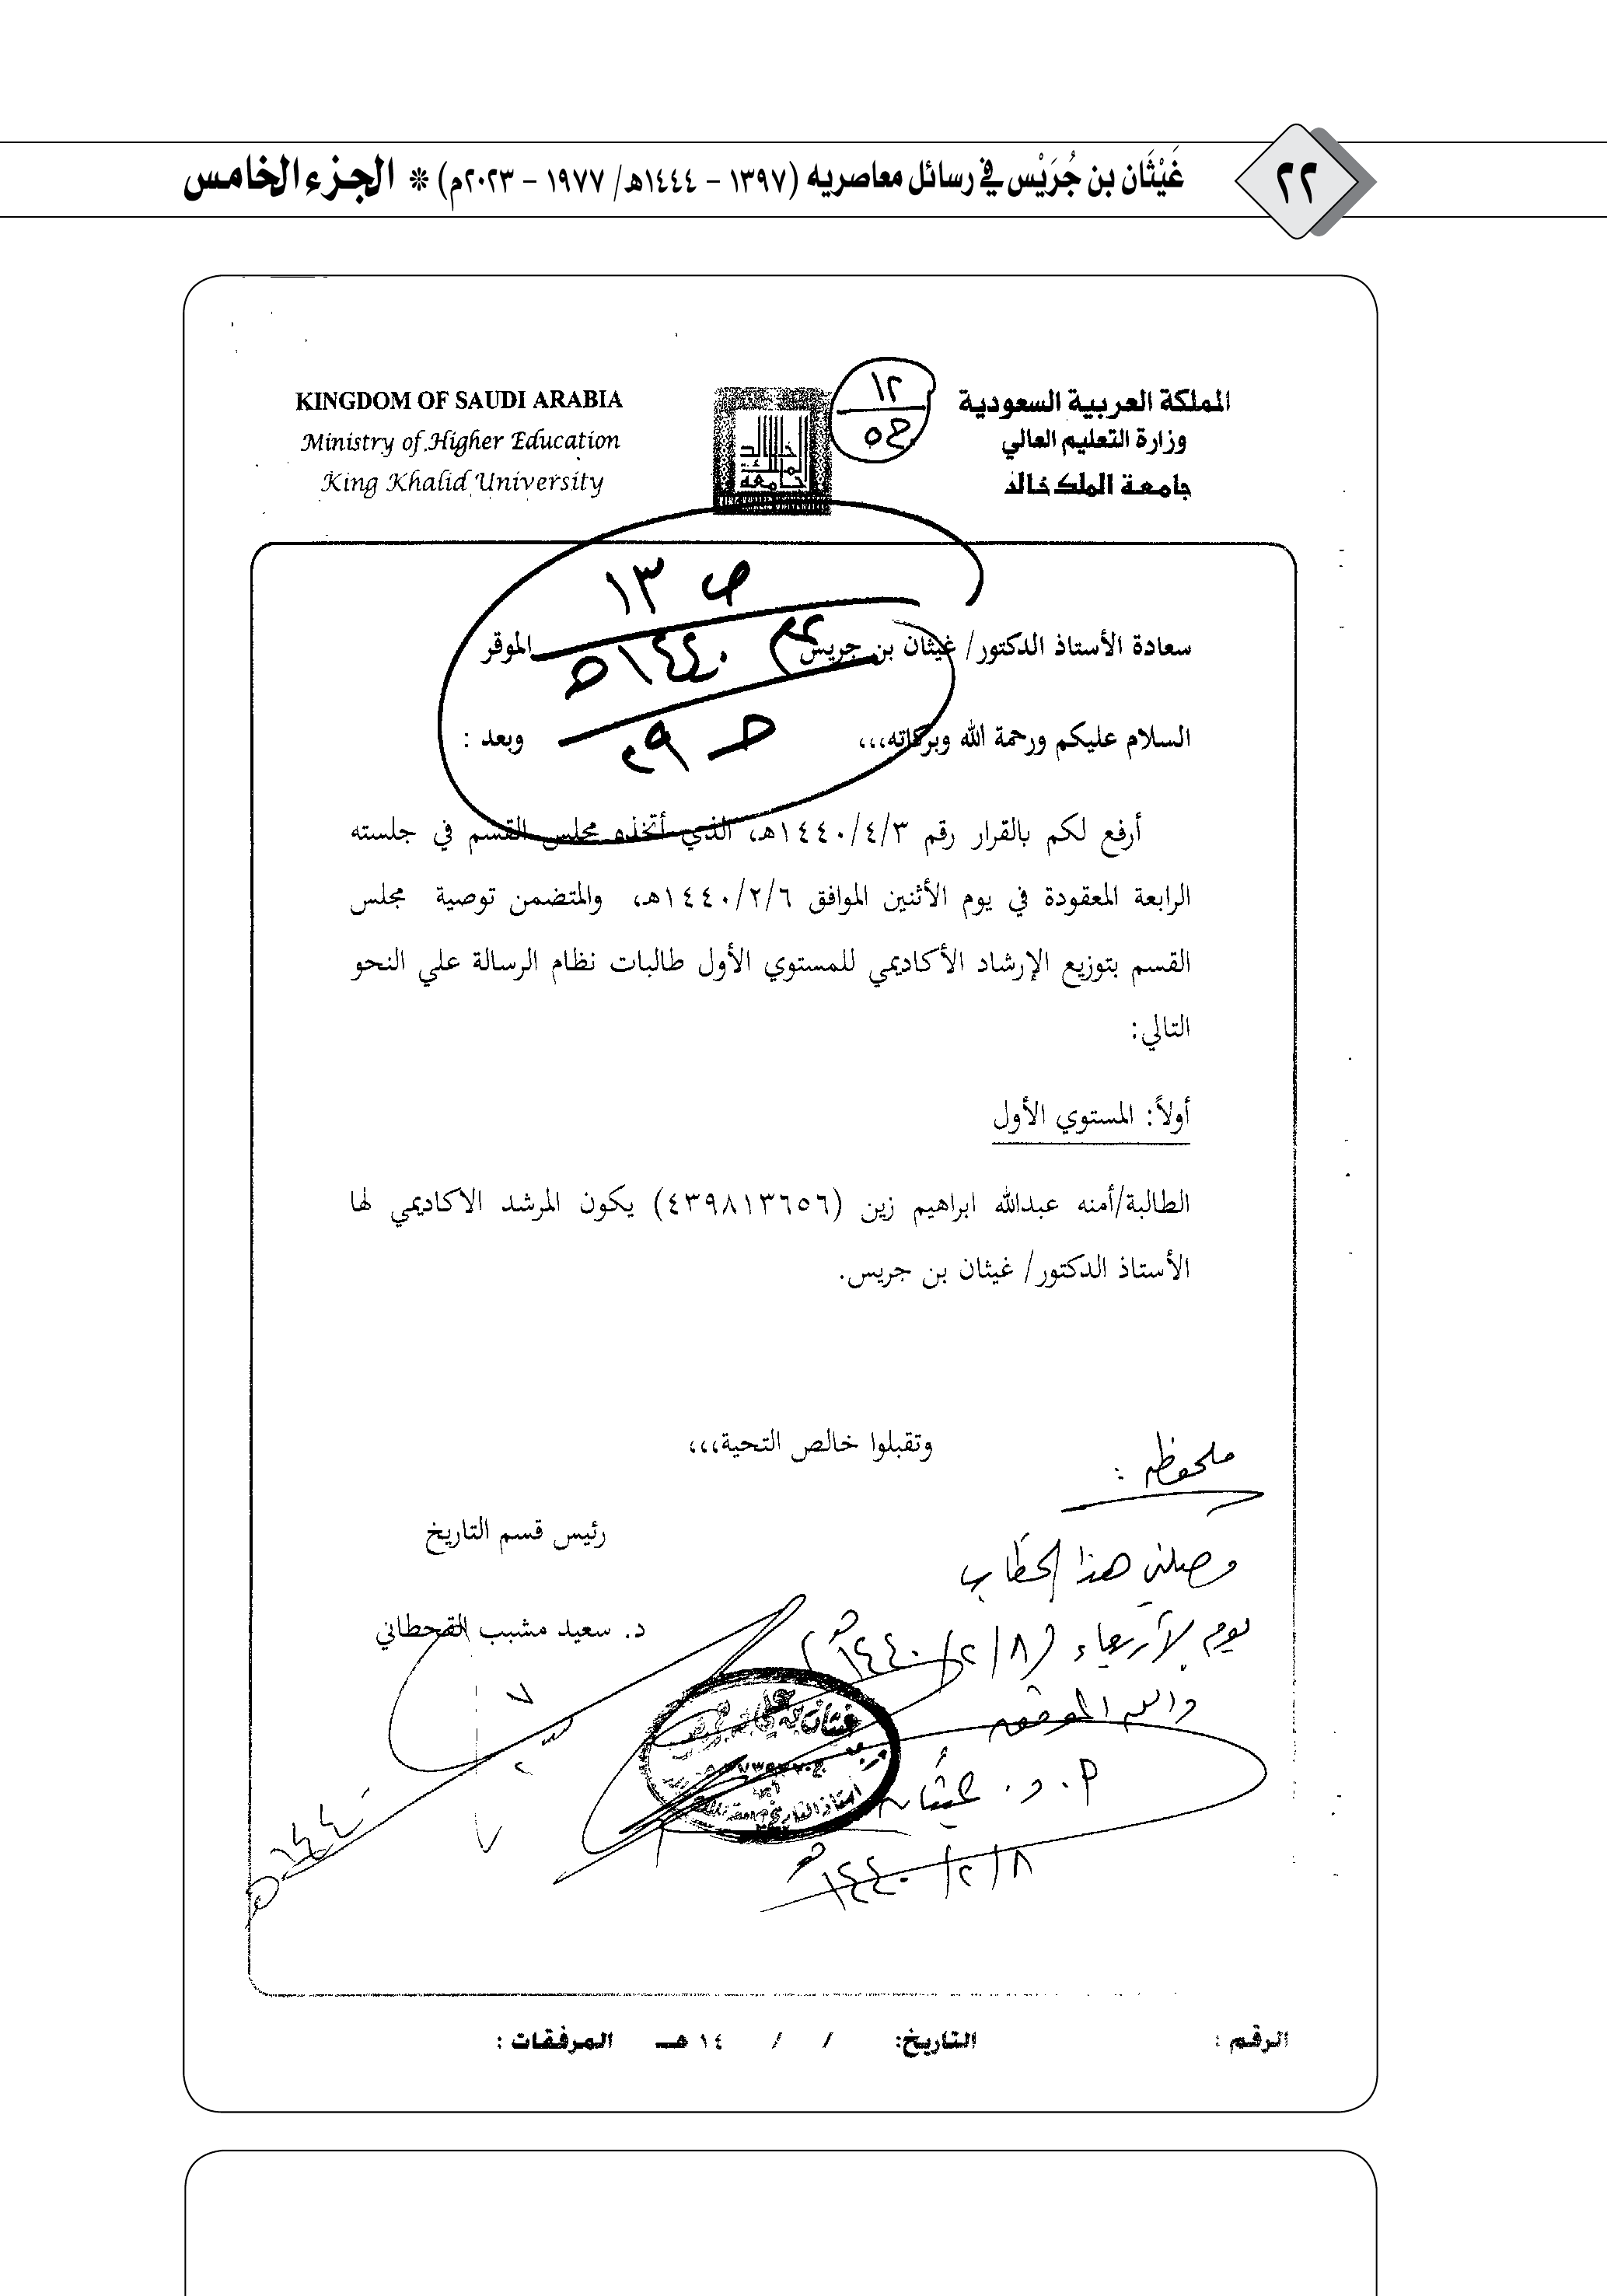 ٢٢
غَيْثَان بن جُرَيْس في رسائل معاصريه (١٣٩٧ - ١٤٤٤هـ/ ١٩٧٧ - ٢٠٢٣م) * الجزء الخامس
المملكة العربية السعودية
وزارة التعليم العالي
جامعة الملك خالد
١٢
ح٥
KINGDOM OF SAUDI ARABIA
Ministry of Higher Education
King Khalid University
ص ١٣
١٤٤٠هـ
سعادة الأستاذ الدكتور/ غيثان بن جريس الموقر
السلام عليكم ورحمة الله وبركاته،،، وبعد :
أرفع لكم بالقرار رقم ١٤٤٠/٤/٣هـ، الذي أتخذه مجلس القسم في جلسته
الرابعة المعقودة في يوم الأثنين الموافق ١٤٤٠/٢/٦هـ، والمتضمن توصية مجلس
القسم بتوزيع الإرشاد الأكاديمي للمستوي الأول طالبات نظام الرسالة علي النحو
التالي:
أولاً: المستوي الأول
الطالبة/أمنه عبدالله ابراهيم زين (٤٣٩٨١٣٦٥٦) يكون المرشد الاكاديمي لها
الأستاذ الدكتور/ غيثان بن جريس.
وتقبلوا خالص التحية،،،
رئيس قسم التاريخ
د. سعيد مشبب القحطاني
ملحوظه :
وصلني هذا الخطاب
يوم الأربعاء (٨/٢/١٤٤٠هـ)
والله الموفق
أ.د. غيثان
٨/٢/١٤٤٠هـ
الرقم : التاريخ: / / ١٤ هـ المرفقات :